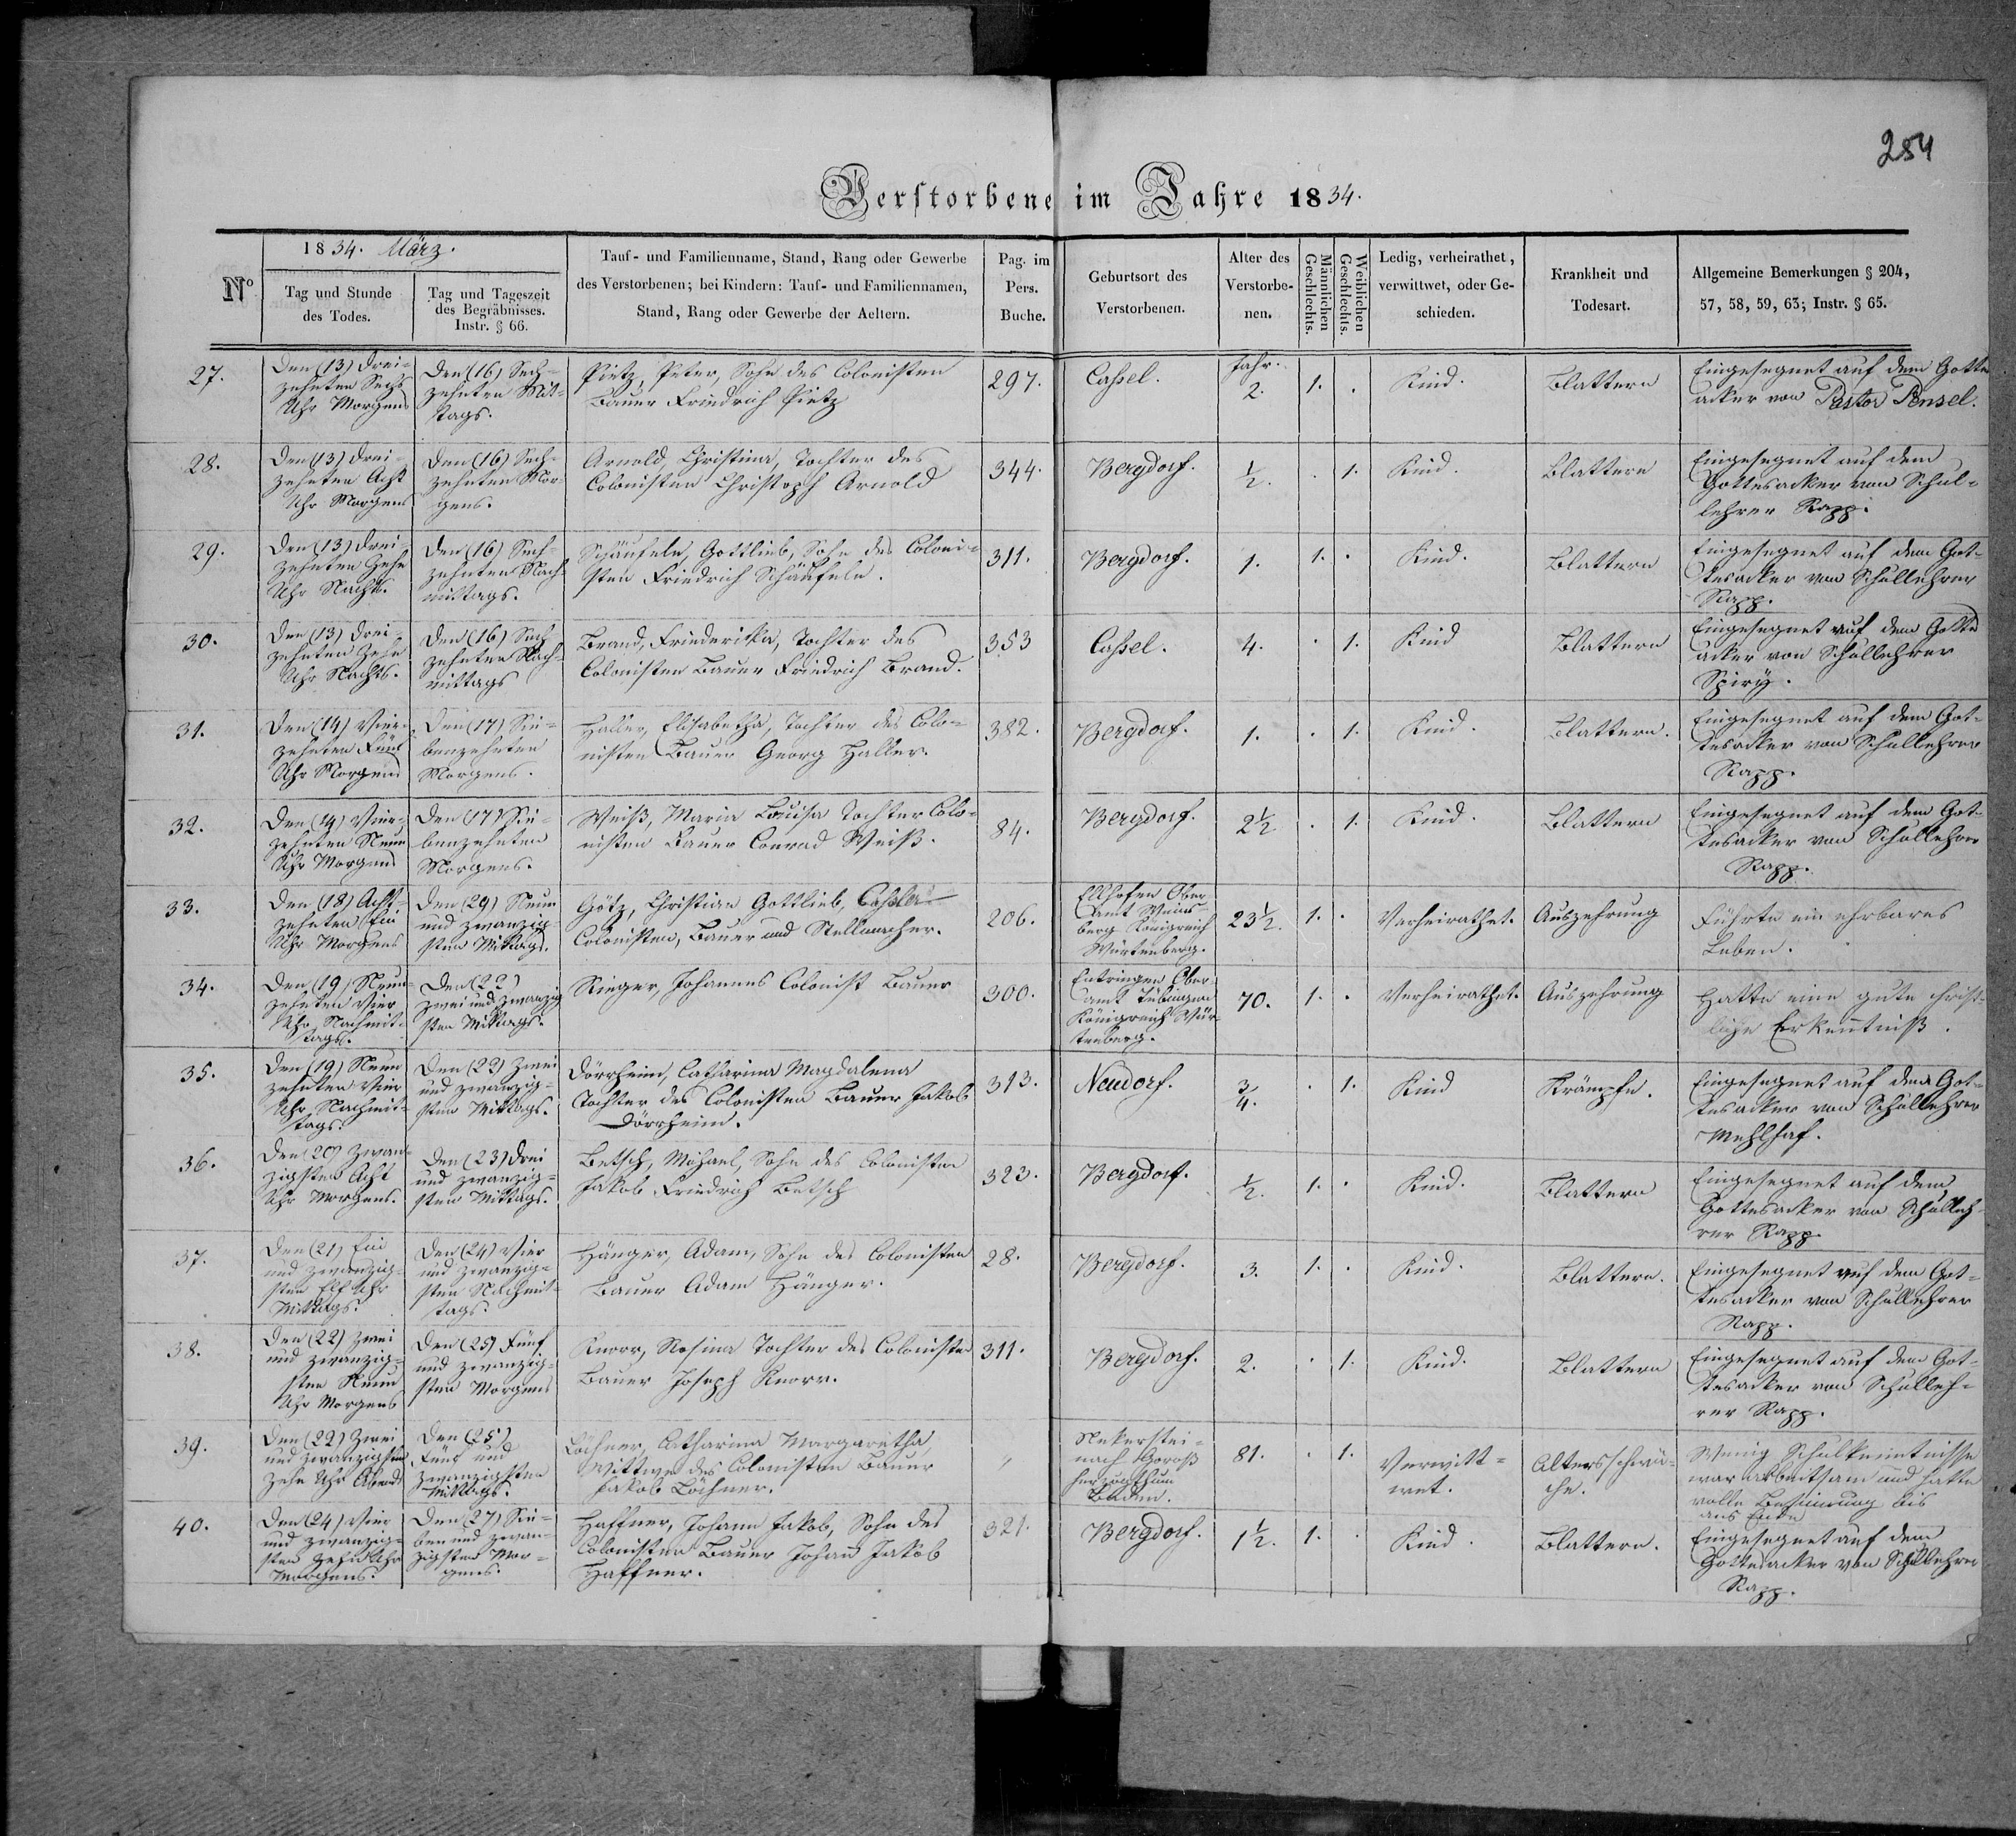 254
Verstorbene im Jahre 1834.
Nº
1834. März.
Tag und Stunde
des Todes.
Tag und Tageszeit
des Begräbnisses.
Instr. § 66.
Tauf- und Familienname, Stand, Rang oder Gewerbe
des Verstorbenen; bei Kindern: Tauf- und Familiennamen,
Stand, Rang oder Gewerbe der Aeltern.
Pag. im
Pers.
Buche.
Geburtsort des
Verstorbenen.
Alter des
Verstorbe-
nen.
Männlichen
Geschlechts.
Weiblichen
Geschlechts.
Ledig, verheirathet,
verwittwet, oder Ge-
schieden.
Krankheit und
Todesart.
Allgemeine Bemerkungen § 204,
57, 58, 59, 63; Instr. § 65.
27.
Den (13) drei-
zehnten Sechs
Uhr Morgens
Den (16) Sech-
zehnten Mit-
tags.
Pietz, Peter, Sohn des Colonisten
Bauer Friedrich Pietz
297.
Cassel.
Jahr.
2.
1. .
Kind.
Blattern
Eingesegnet auf dem Gottes
acker von Pastor Pensel.
28.
Den (13) drei-
zehnten Acht
Uhr Morgens
Den (16) Sech-
zehnten Mor-
gens.
Arnold, Christina, Tochter des
Colonisten Christoph Arnold
344.
Bergdorf.
1/2.
. 1.
Kind.
Blattern
Eingesegnet auf dem
Gottesacker von Schul-
lehrer Rapp.
29.
Den (13) drei-
zehnten Zehn
Uhr Nachts.
Den (16) Sech-
zehnten Nach-
mittags.
Schäufele, Gottlieb, Sohn des Coloni-
sten Friedrich Schäufele.
311.
Bergdorf.
1.
1. .
Kind.
Blattern
Eingesegnet auf dem Got-
tesacker von Schullehrer
Rapp.
30.
Den (13) drei-
zehnten Zehn
Uhr Nachts.
Den (16) Sech
zehnten Nach-
mittags
Brand, Friederika, Tochter des
Colonisten Bauer Friedrich Brand.
353
Cassel.
4.
. 1.
Kind
Blattern
Eingesegnet auf dem Gottes
acker von Schullehrer
Spiry.
31.
Den (14) Vier-
zehnten Fünf
Uhr Morgens
Den (17) Sie-
benzehnten
Morgens.
Haller, Elisabetha, Tochter des Colo-
nisten Bauer Georg Haller.
382.
Bergdorf.
1.
. 1.
Kind.
Blattern.
Eingesegnet auf dem Got-
tesacker von Schullehrer
Rapp.
32.
Den (14) Vier-
zehnten Neun
Uhr Morgens
Den (17) Sie-
benzehnten
Morgens.
Weiß, Maria Louisa Tochter Colo-
nisten Bauer Conrad Weiß.
84.
Bergdorf.
2 1/2
. 1.
Kind.
Blattern
Eingesegnet auf dem Got-
tesacker von Schullehrer
Rapp.
33.
Den (18) Acht-
zehnten Ein
Uhr Morgens
Den (29) Neun
und zwanzig-
sten Mittags.
Götz, Christian Gottlieb,
Colonisten, Bauer und Stellmacher.
206.
Ellhofen Ober
amt Weins-
berg Königreich
Würtenberg.
23 1/2.
1. .
Verheirathet.
Auszehrung
Führte ein ehrbares
Leben.
34.
Den (19) Neun-
zehnten Vier
Uhr Nachmit-
tags.
Den (22)
zwei und zwanzig
sten Mittags.
Rieger, Johannes Colonist Bauer
300.
Entringen Ober
amt Tübingen
Königreich Wür-
tenberg.
70.
1. .
Verheirathet.
Auszehrung
Hatte eine gute christ-
liche Erkenntniß.
35.
Den (19) Neun
zehnten Vier
Uhr Nachmit-
tags.
Den (22) Zwei
und zwanzig-
sten Mittags.
Dörrheim, Catharina Magdalena
Tochter des Colonisten Bauer Jakob
Dörrheim.
313.
Neudorf.
3/4.
. 1.
Kind
Krämpfe.
Eingesegnet auf dem Got-
tesacker von Schullehrer
Mehlhaf.
36.
Den (20) Zwan-
zigsten Acht
Uhr Morgens.
Den (23) drei
und zwanzig-
sten Mittags.
Betsch, Michael, Sohn des Colonisten
Jakob Friedrich Betsch
323.
Bergdorf.
1/2.
1. .
Kind.
Blattern
Eingesegnet auf dem
Gottesacker von Schulleh-
rer Rapp.
37.
Den (21) Ein
und zwanzig-
sten Elf Uhr
Mittags.
Den (24) Vier
und zwanzig-
sten Nachmit-
tags.
Hänger, Adam, Sohn des Colonisten
Bauer Adam Hänger.
28.
Bergdorf.
3.
1. .
Kind.
Blattern.
Eingesegnet auf dem Got-
tesacker von Schullehrer
Rapp.
38.
Den (22) Zwei
und zwanzig-
sten Neun
Uhr Morgens
Den (25) Fünf
und zwanzig-
sten Morgens
Knorr, Rosina Tochter des Colonisten
Bauer Joseph Knorr.
311.
Bergdorf.
2.
. 1.
Kind.
Blattern
Eingesegnet auf dem Got-
tesacker von Schulleh-
rer Rapp.
39.
Den (22) Zwei
und zwanzigsten
Zehn Uhr Abends
Den (25)
Fünf und
zwanzigsten
Mittags.
Löchner, Catharina Margaretha,
Wittwe des Colonisten Bauer
Jakob Löchner.
"
Nekerstei-
nach Gross
herzogthum
Baden.
81.
. 1.
Verwitt-
wet.
Altersschwä-
che.
Wenig Schulkenntnisse
war arbeitsam und hatte
volle Besinnung bis
ans Ende
40.
Den (24) Vier
und zwanzig-
sten Zehn Uhr
Morgens.
Den (27) Sie-
ben und zwan-
zigsten Mor-
gens.
Haffner, Johann Jakob, Sohn des
Colonisten Bauer Johann Jakob
Haffner.
321.
Bergdorf.
1 1/2.
1. .
Kind.
Blattern.
Eingesegnet auf dem
Gottesacker von Schullehrer
Rapp.